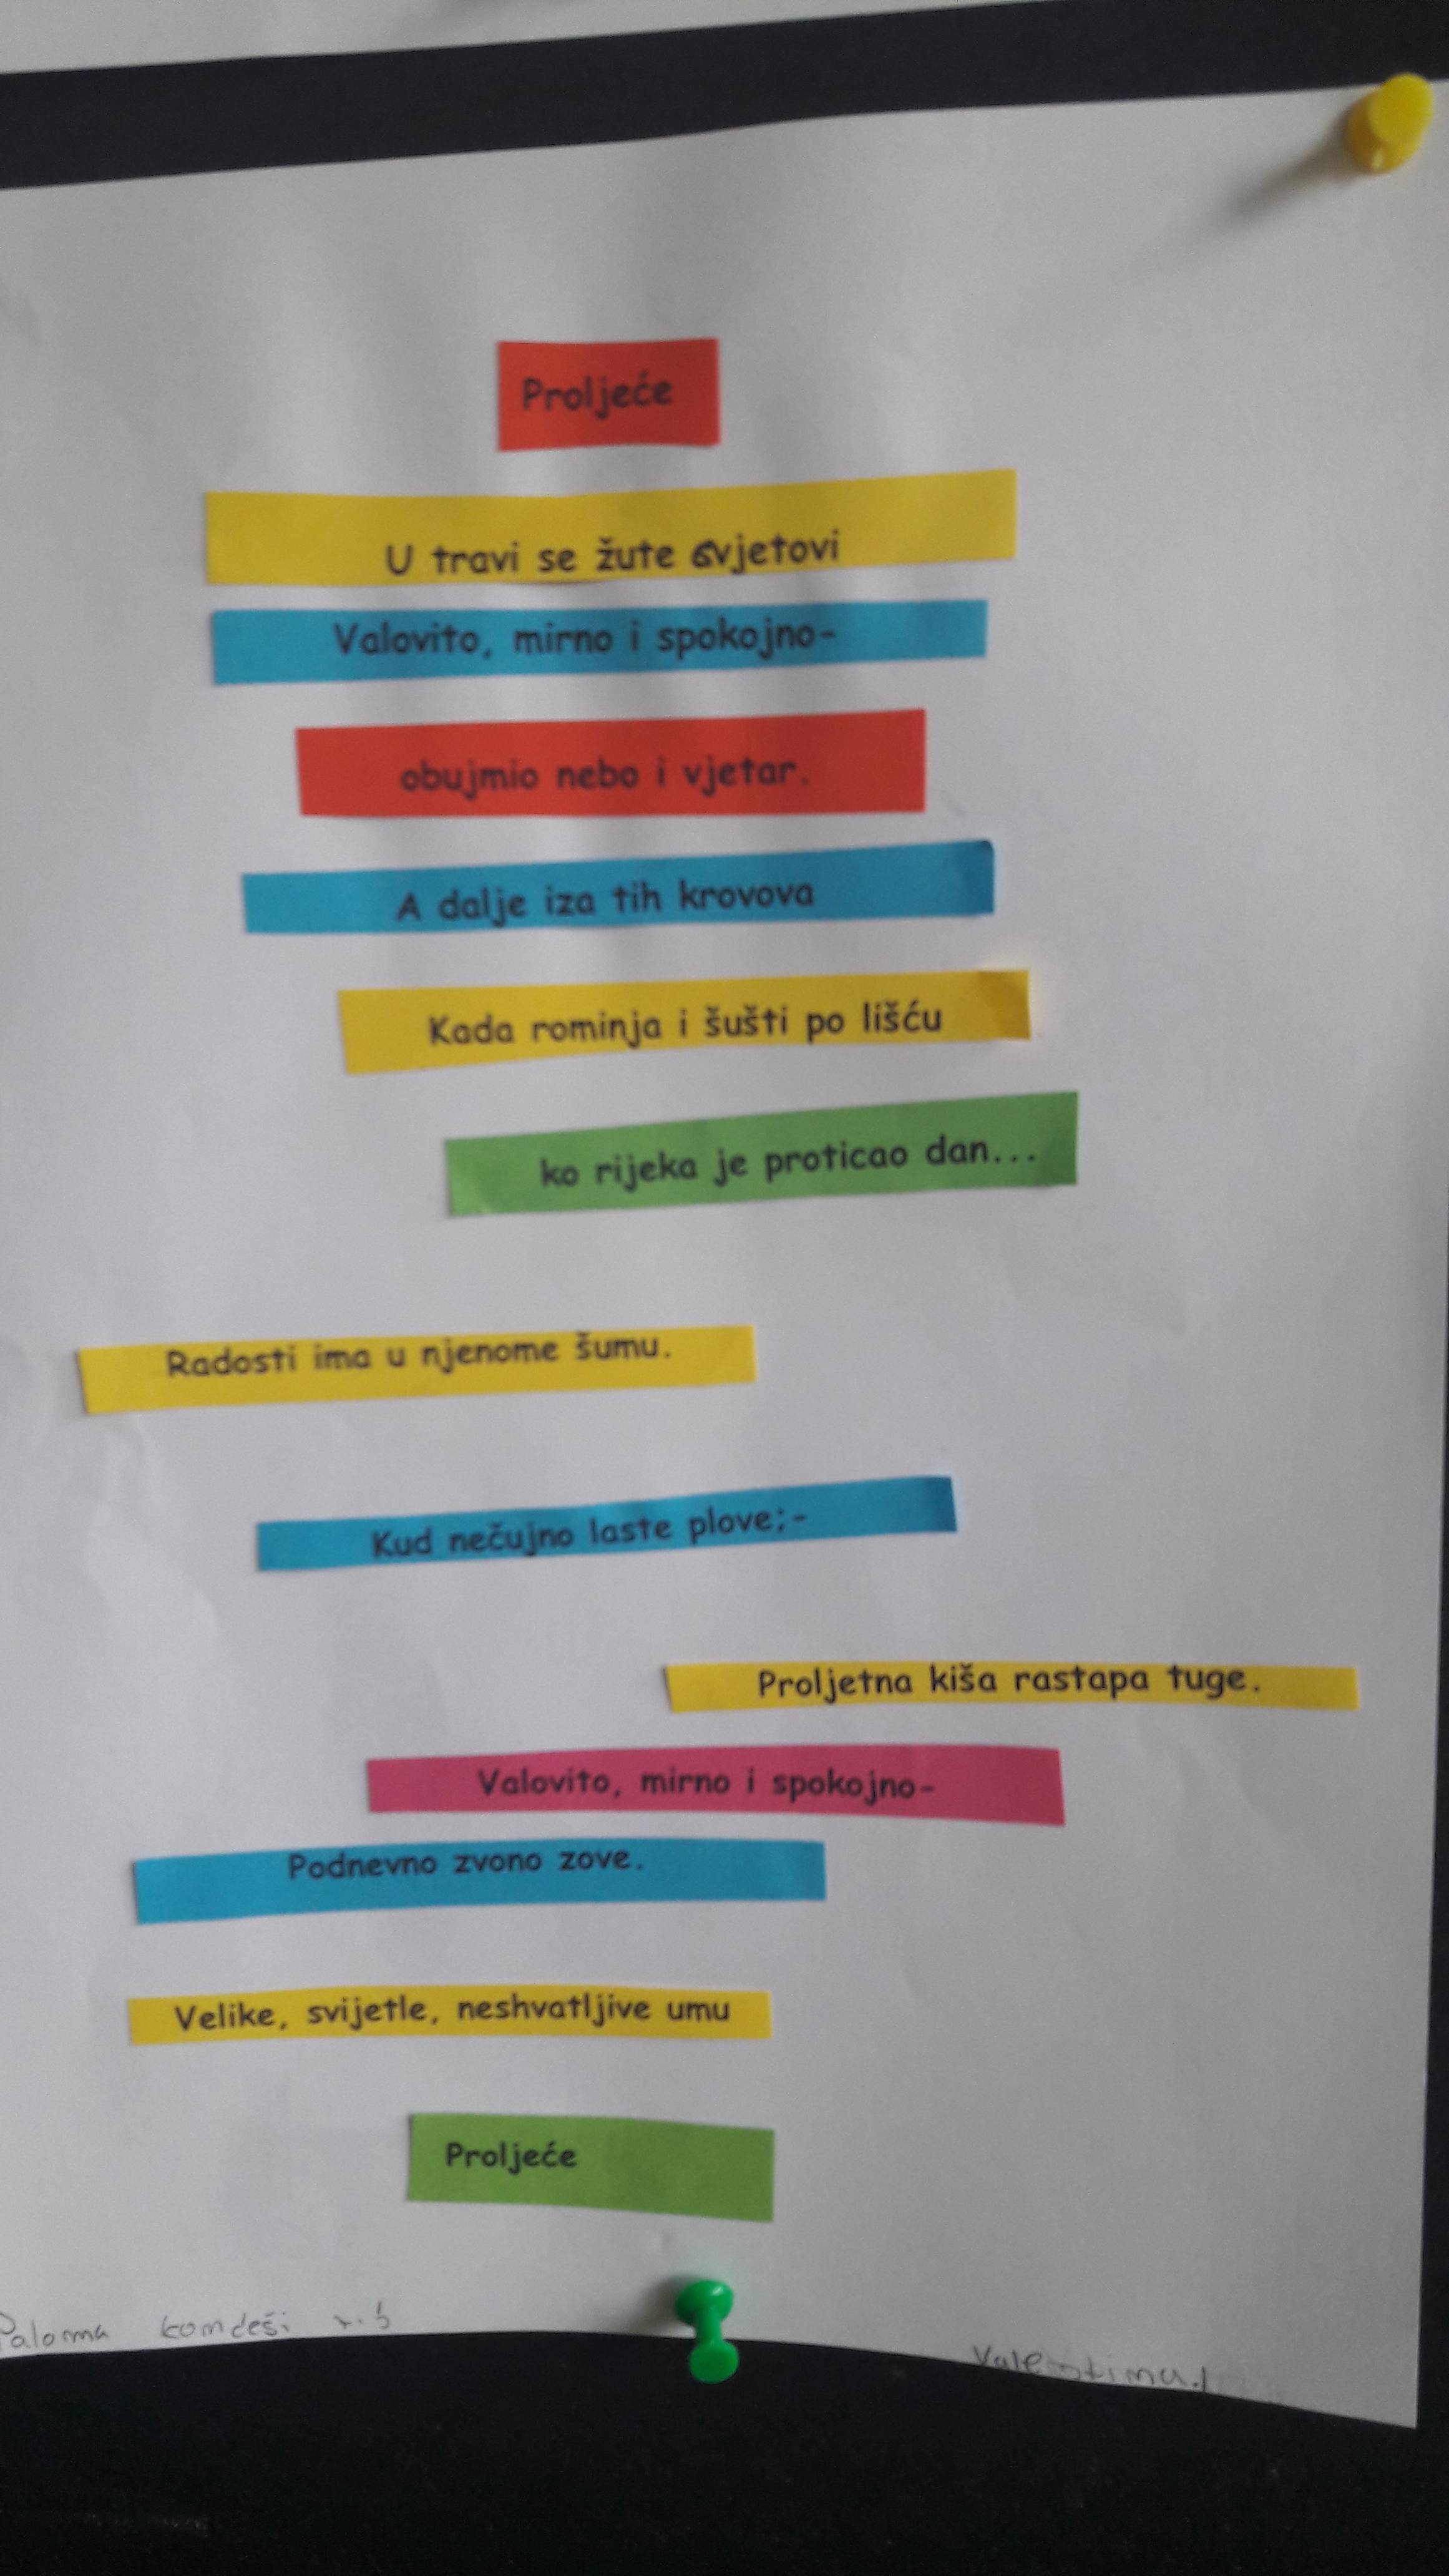 Proljeće
U travi se žute cvjetovi
Valovito, mirno i spokojno-
obujmio nebo i vjetar.
A dalje iza tih krovova
Kada rominja i šušti po lišću
ko rijeka je proticao dan...
Radosti ima u njenome šumu.
Kud nečujno laste plove;-
Proljetna kiša rastapa tuge.
Valovito, mirno i spokojno-
Podnevno zvono zove.
Velike, svijetle, neshvatljive umu
Proljeće
Paloma